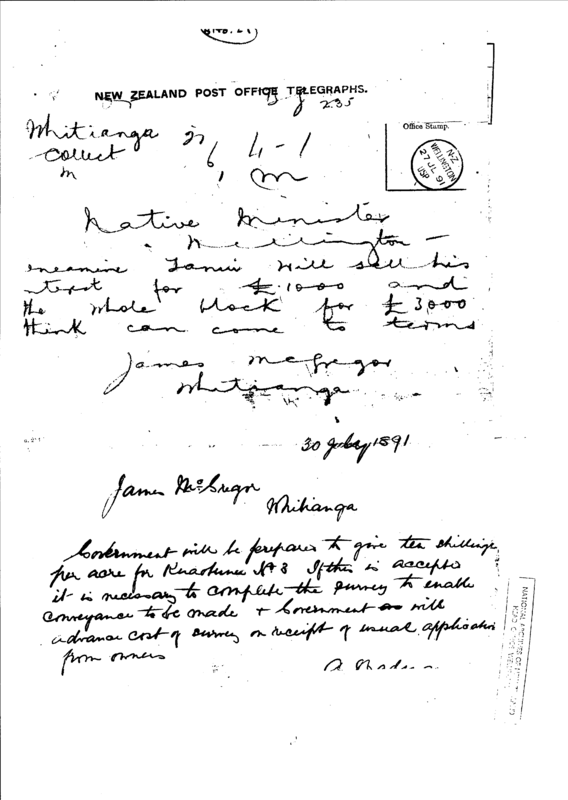 NEW ZEALAND POST OFFICE TELEGRAPHS.
235
Whitianga
Collect
Office Stamp.
WELLINGTON N-Z
27 JL 91
Native Minister
Wellington —
will sell his
for £1000 and
the whole block for £3000
think can come to terms
James McGregor
Whitianga
30 July 1891
James McGregor
Whitianga
Government will be prepared to give ten shillings
per acre for Kuaotunu No 3 If this is accepted
it is necessary to complete the survey to enable
conveyance to be made + Government will
advance cost of survey on receipt of usual application
from owners
NATIONAL ARCHIVES OF